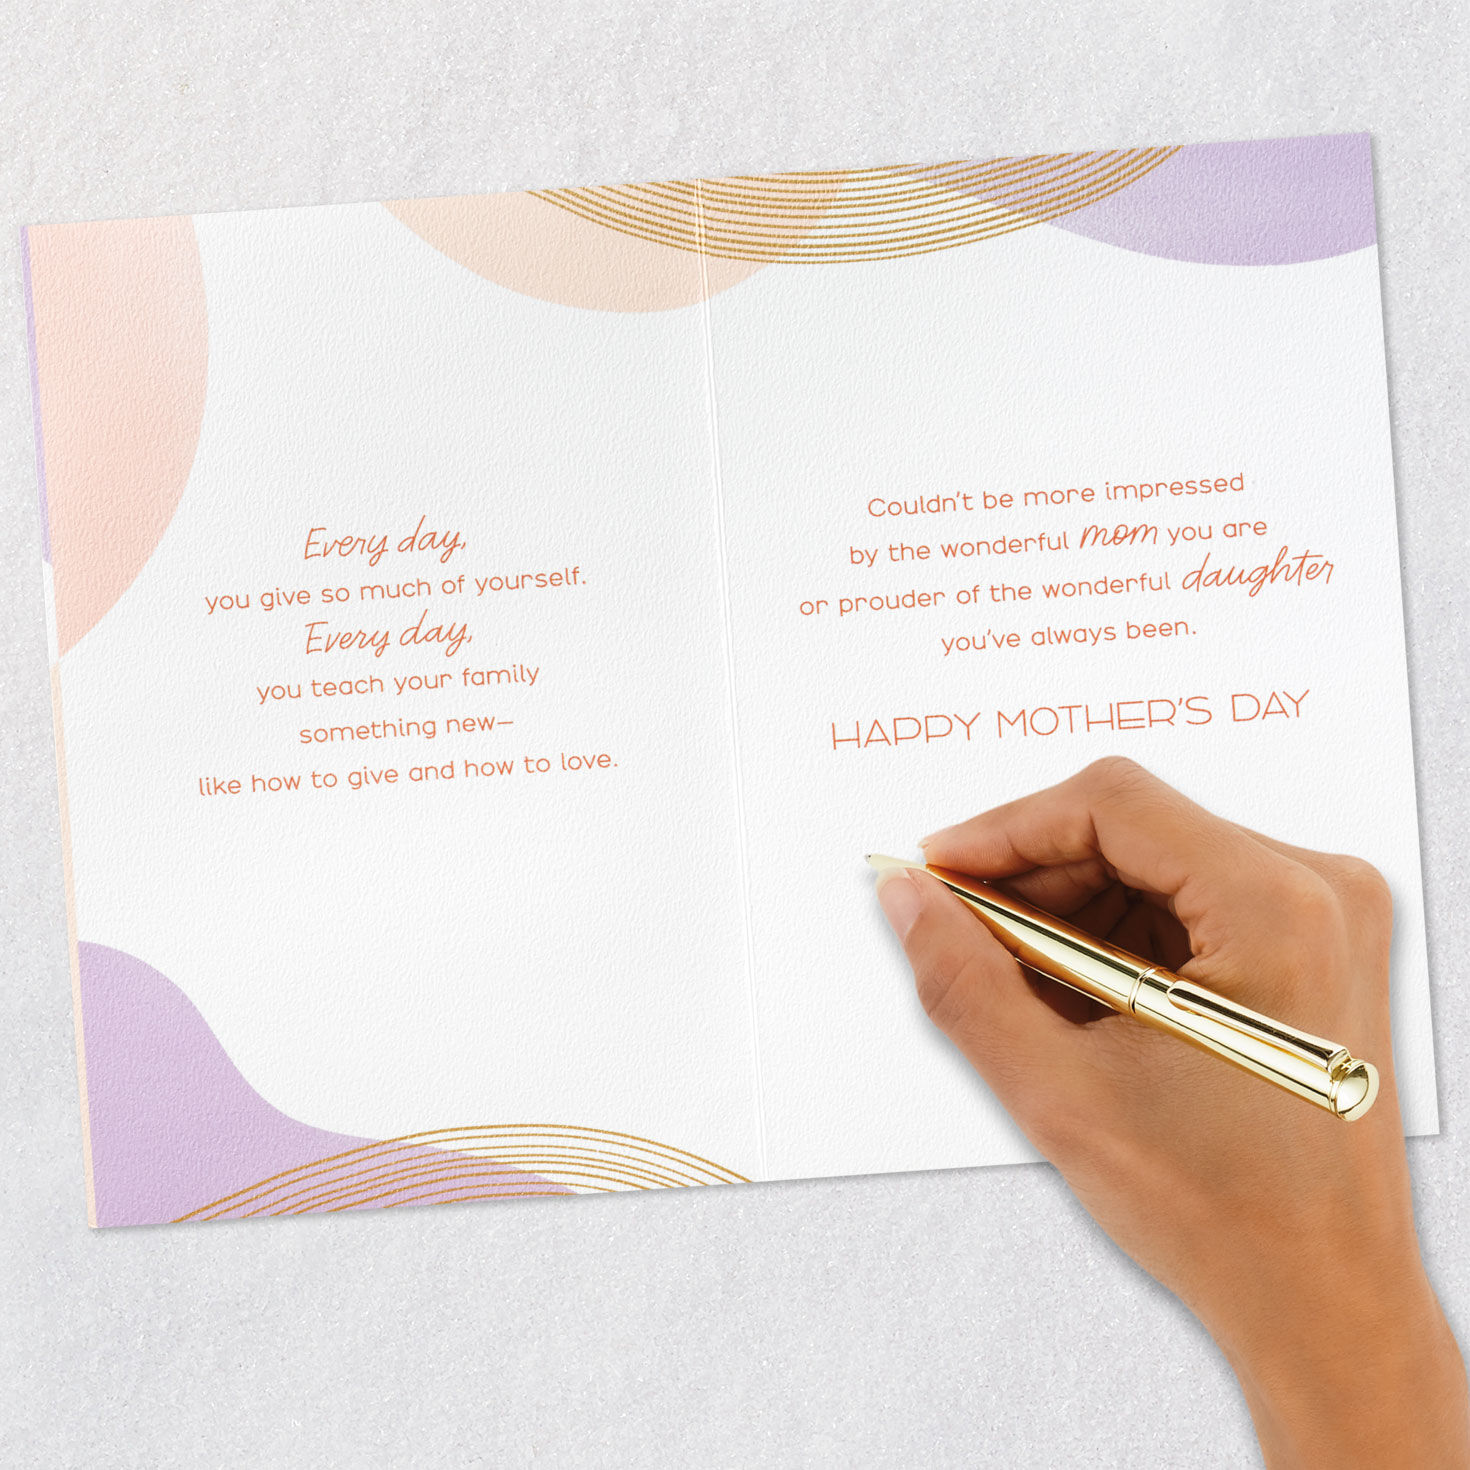 Every day,
you give so much of yourself.
Every day,
you teach your family
something new—
like how to give and how to love.
Couldn't be more impressed
by the wonderful mom you are
or prouder of the wonderful daughter
you've always been.
HAPPY MOTHER'S DAY